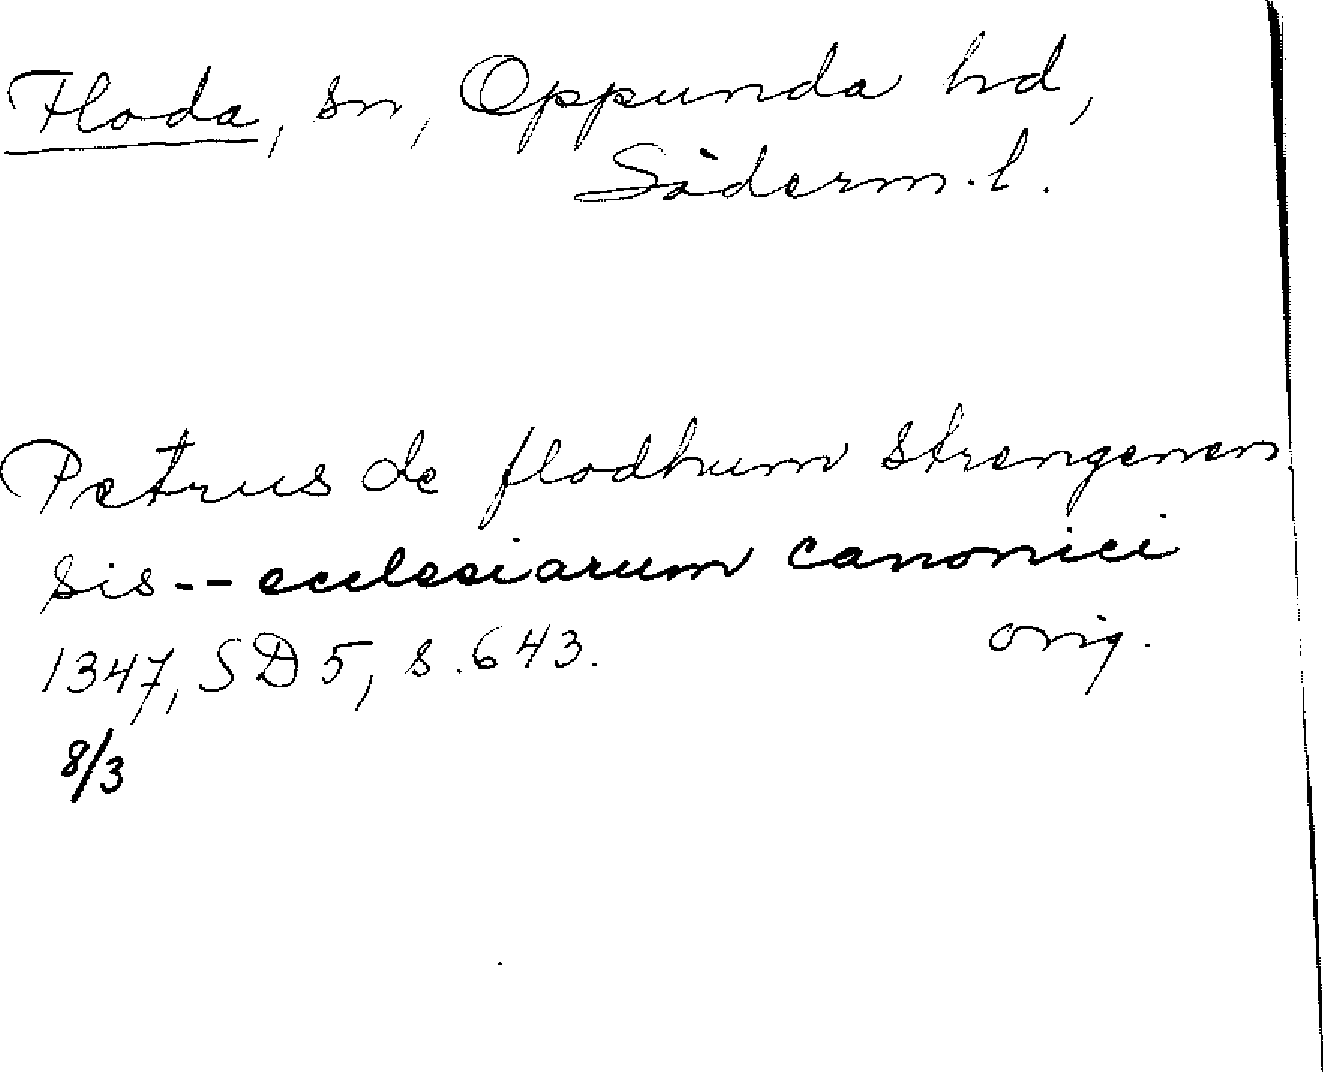 Floda, sn, Oppunda hd,
Söderm. l.
Petrus de flodhum strengenen
sis -- ecclesiarum canonici
1347, SD 5, s. 643. orig.
8/3